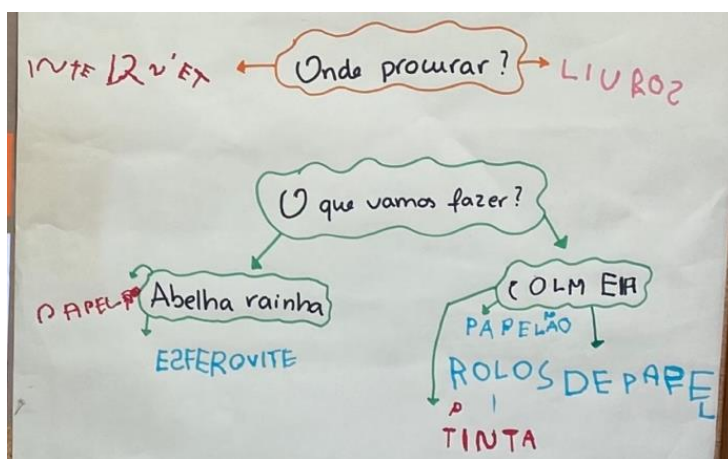 INTERN'ET
Onde procurar?
LIVROS
O que vamos fazer?
PAPEL
Abelha rainha
COLMEIA
ESFEROVITE
PAPELÃO
ROLOS DE PAPEL
TINTA